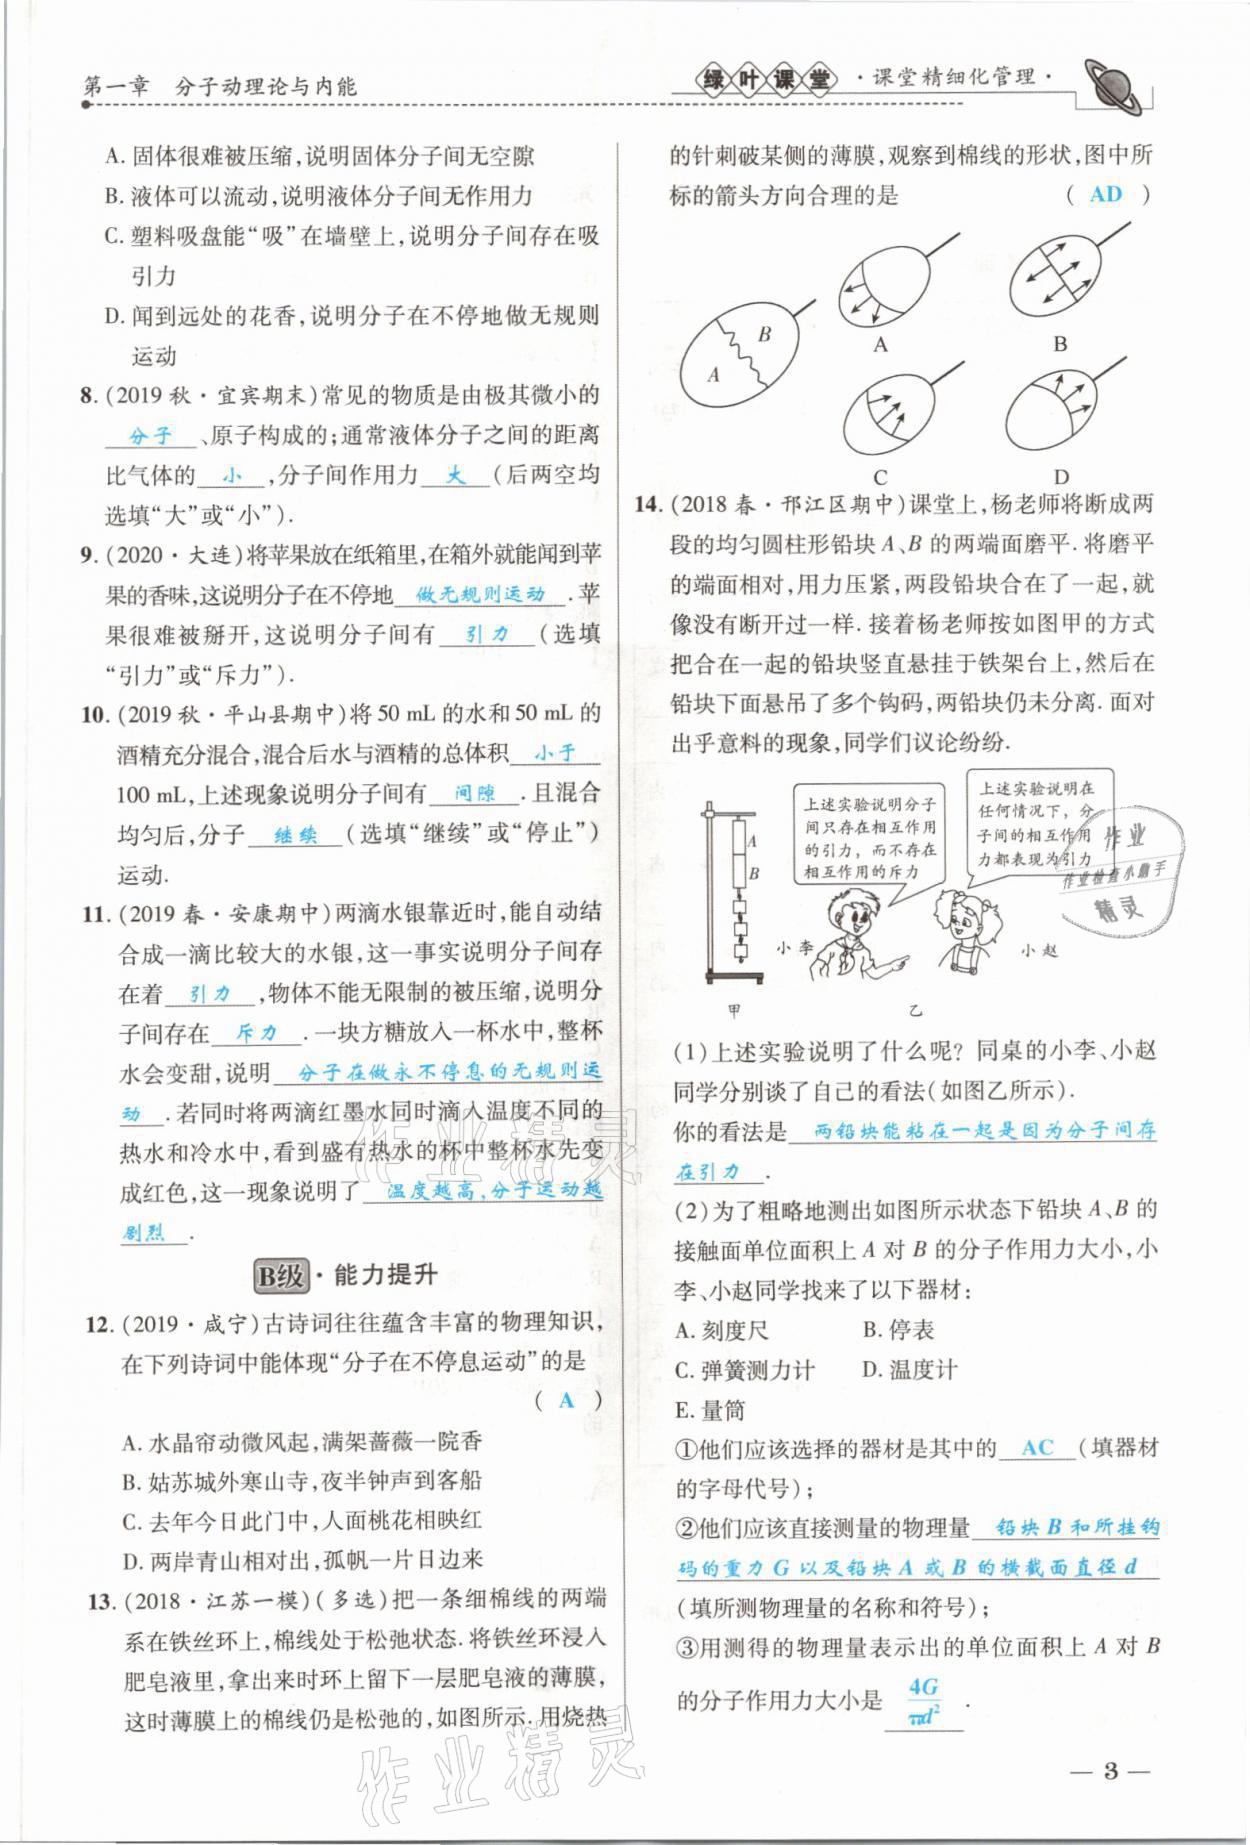 第一章　分子动理论与内能
绿叶课堂
·课堂精细化管理·
A. 固体很难被压缩,说明固体分子间无空隙
B. 液体可以流动,说明液体分子间无作用力
C. 塑料吸盘能“吸”在墙壁上,说明分子间存在吸
引力
D. 闻到远处的花香,说明分子在不停地做无规则
运动
8. (2019 秋·宜宾期末)常见的物质是由极其微小的
分子、原子构成的;通常液体分子之间的距离
比气体的 小 ,分子间作用力 大 (后两空均
选填“大”或“小”).
9. (2020·大连)将苹果放在纸箱里,在箱外就能闻到苹
果的香味,这说明分子在不停地 做无规则运动 .苹
果很难被掰开,这说明分子间有 引力 (选填
“引力”或“斥力”).
10. (2019 秋·平山县期中)将 50 mL 的水和 50 mL 的
酒精充分混合,混合后水与酒精的总体积 小于
100 mL,上述现象说明分子间有 间隙 .且混合
均匀后,分子 继续 (选填“继续”或“停止”)
运动.
11. (2019 春·安康期中)两滴水银靠近时,能自动结
合成一滴比较大的水银,这一事实说明分子间存
在着 引力 ,物体不能无限制的被压缩,说明分
子间存在 斥力 .一块方糖放入一杯水中,整杯
水会变甜,说明 分子在做永不停息的无规则运
动 .若同时将两滴红墨水同时滴入温度不同的
热水和冷水中,看到盛有热水的杯中整杯水先变
成红色,这一现象说明了 温度越高,分子运动越
剧烈 .
B级·能力提升
12. (2019·咸宁)古诗词往往蕴含丰富的物理知识,
在下列诗词中能体现“分子在不停息运动”的是
( A )
A. 水晶帘动微风起,满架蔷薇一院香
B. 姑苏城外寒山寺,夜半钟声到客船
C. 去年今日此门中,人面桃花相映红
D. 两岸青山相对出,孤帆一片日边来
13. (2018·江苏一模)(多选)把一条细棉线的两端
系在铁丝环上,棉线处于松弛状态. 将铁丝环浸入
肥皂液里,拿出来时环上留下一层肥皂液的薄膜,
这时薄膜上的棉线仍是松弛的,如图所示. 用烧热
的针刺破某侧的薄膜,观察到棉线的形状,图中所
标的箭头方向合理的是 ( AD )
A B
A
B
C
D
14. (2018 春·邗江区期中)课堂上,杨老师将断成两
段的均匀圆柱形铅块 A、B 的两端面磨平. 将磨平
的端面相对,用力压紧,两段铅块合在了一起,就
像没有断开过一样. 接着杨老师按如图甲的方式
把合在一起的铅块竖直悬挂于铁架台上,然后在
铅块下面悬吊了多个钩码,两铅块仍未分离. 面对
出乎意料的现象,同学们议论纷纷.
A
B
甲
上述实验说明分子
间只存在相互作用
的引力,而不存在
相互作用的斥力
上述实验说明在
任何情况下,分
子间的相互作用
力都表现为引力
小李
小赵
乙
(1)上述实验说明了什么呢? 同桌的小李、小赵
同学分别谈了自己的看法(如图乙所示).
你的看法是 两铅块能粘在一起是因为分子间存
在引力 .
(2)为了粗略地测出如图所示状态下铅块 A、B 的
接触面单位面积上 A 对 B 的分子作用力大小,小
李、小赵同学找来了以下器材:
A. 刻度尺　　B. 停表
C. 弹簧测力计　　D. 温度计
E. 量筒
①他们应该选择的器材是其中的 AC (填器材
的字母代号);
②他们应该直接测量的物理量 铅块 B 和所挂钩
码的重力 G 以及铅块 A 或 B 的横截面直径 d
(填所测物理量的名称和符号);
③用测得的物理量表示出的单位面积上 A 对 B
的分子作用力大小是 4G/πd² .
作业
作业检查小助手
精灵
作业精灵
作业精灵
— 3 —